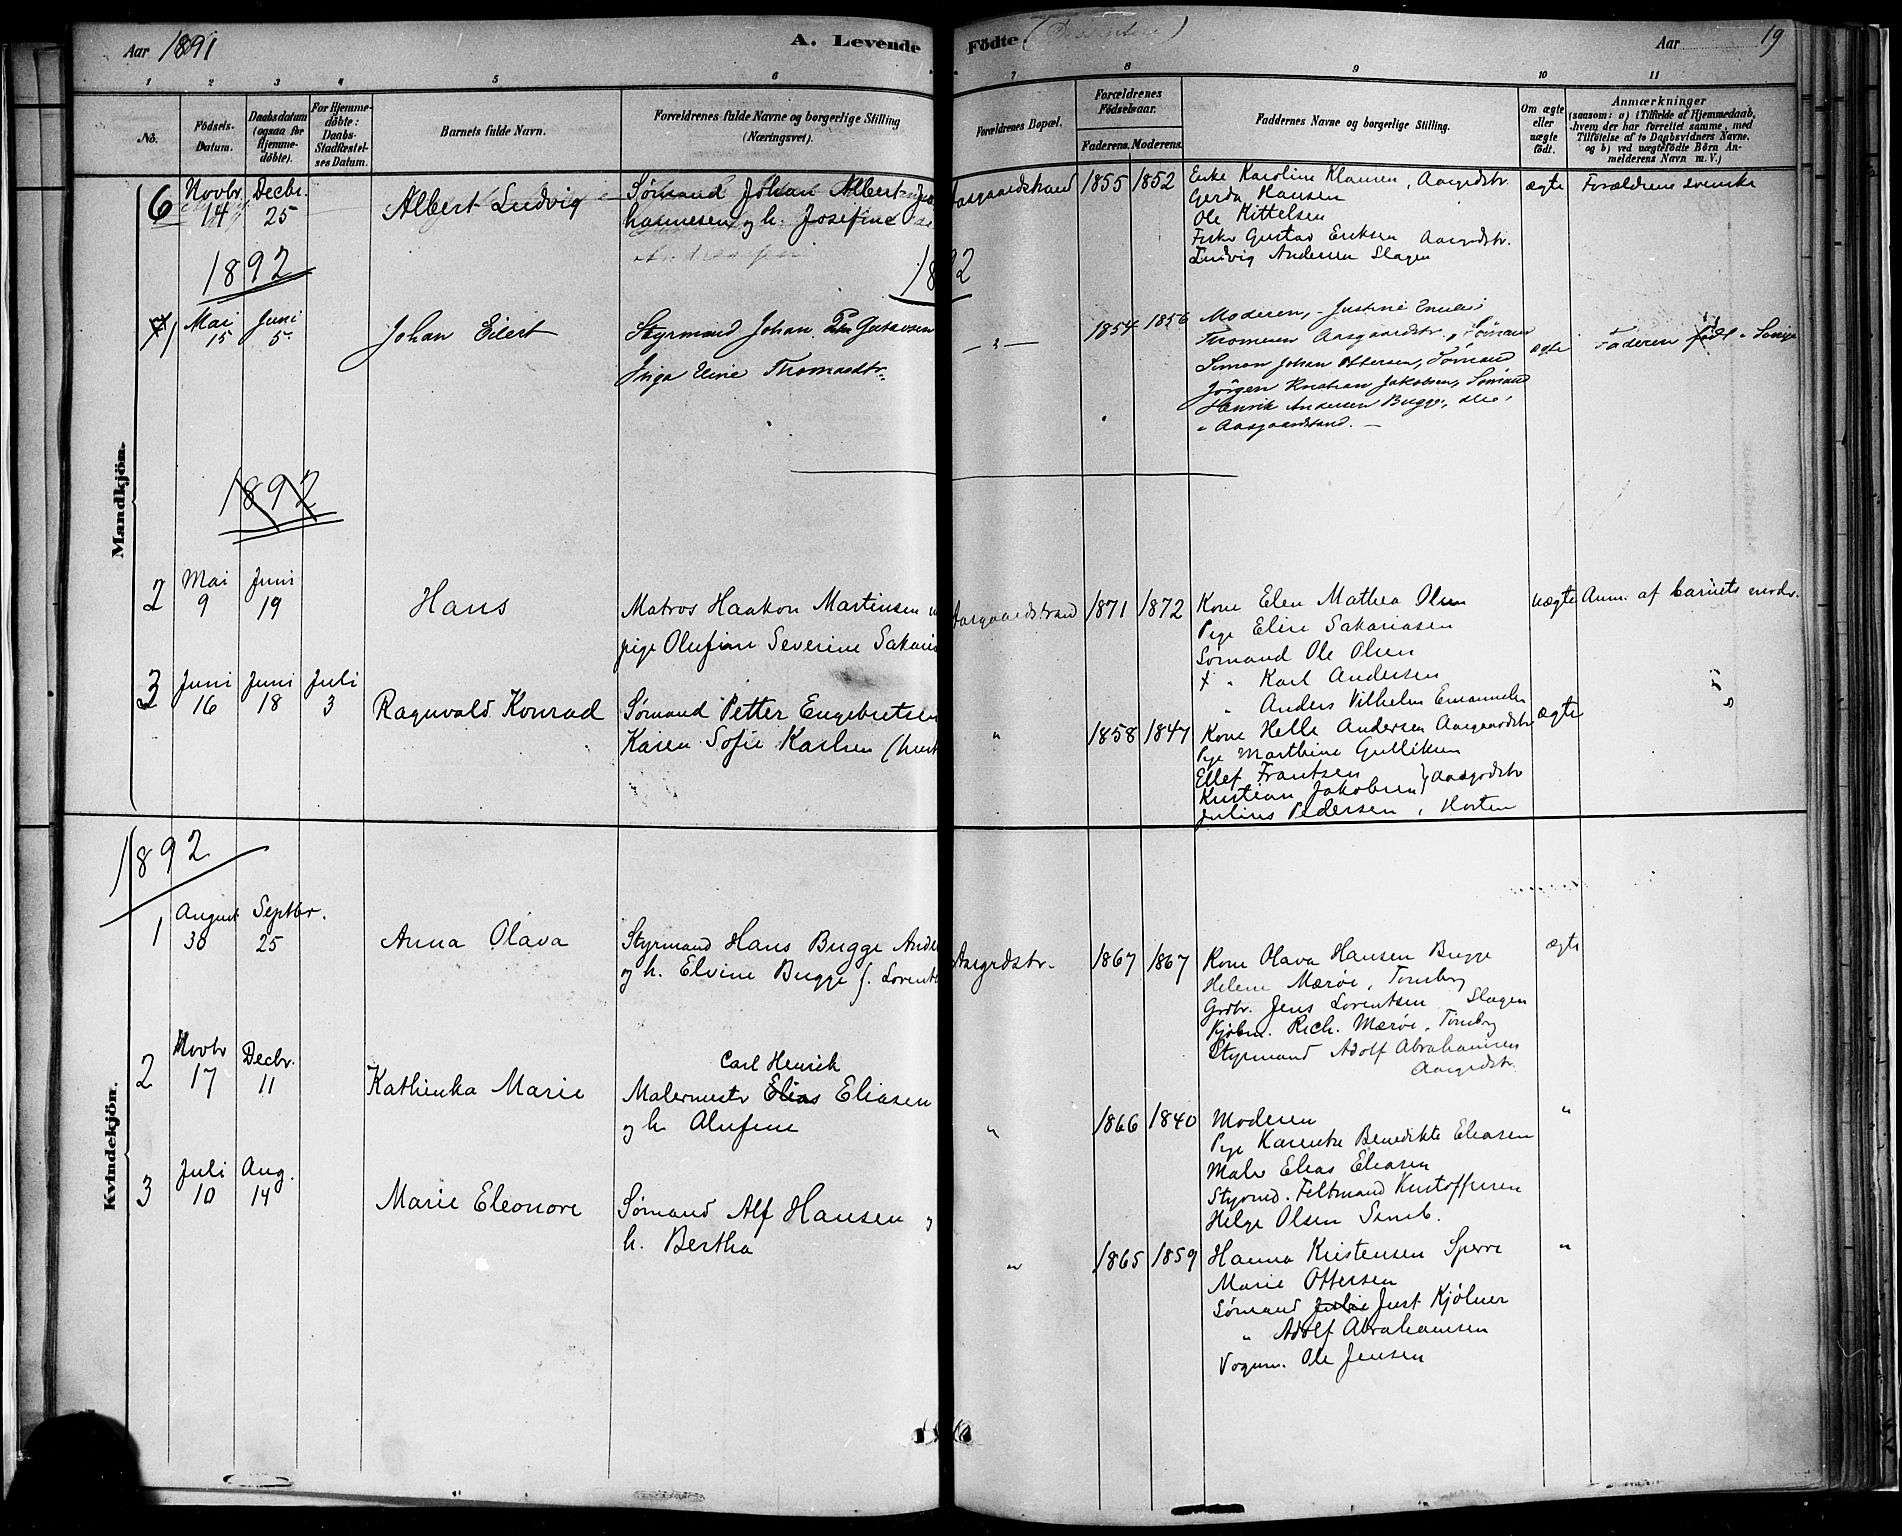 Aar 1891
A. Levende Födte
Aar 19
1 2 3 4 5 6 7 8 9 10 11
No.
Födsels-Datum.
Daabsdatum (ogsaa for Hjemmedöbte).
For Hjemmedöbte: Daabs-Stadfæstelses Datum.
Barnets fulde Navn.
Forældrenes fulde Navne og borgerlige Stilling (Næringsvei).
Forældrenes Bopæl.
Forældrenes Födselsaar.
Faderens. Moderens.
Faddernes Navne og borgerlige Stilling.
Om ægte eller uægte födt.
Anmærkninger
(saasom: a) i Tilfælde af Hjemmedaab, hvem der har forrettet samme, med Tilföielse af to Daabsvidners Navne. og b) ved uægtefödte Börn Anmelderens Navn m. V.)
Mandkjön.
6 Novbr. 14 Decbr. 25
Albert Ludvig
Sømand Johan Albert
og h. Josefine
Aasgaardstrand 1855 1852
Enke Karoline Klausen, Aasgrdstr.
Gerda Hansen
Ole Kittelsen
Fisker Gustav Eriksen Aasgrdstr.
Ludvig Andersen Slagen
ægte
Forældrene svenske
1892
1892
1 Mai 15 Juni 5
Johan Eilert
Styrmand Johan Gustavsen
Inga Elvine Thomasdtr.
— " —
1854 1856
Moderen, Justine Emilie
Thomesen Aasgaardstr., Sömand
Simon Johan Ottersen, Sömand
Jörgen Kristian Jakobsen, Sömand
Henrik Andersen Bugge, alle i
Aasgaardstrand. —
ægte
Faderen født i Sverige
1892
2 Mai 9 Juni 19
Hans
Matros Haakon Martinsen
pige Olufine Severine
Aasgaardstrand 1871 1872
Kone Elen Mathea Olsen
Pige Eline Sakariasen
Sømand Ole Olsen
" Karl Andersen
" Anders Vilhelm
uægte
Anm. af barnets moder.
3 Juni 16 Juni 18 Juli 3
Ragnvald Konrad
Sømand Petter Engebretsen
Karen Sofie Karlsen
" 1858 1847
Kone Helle Andersen Aasgaardstr
Pige Marthine Gulliksen
Ellef Frantsen
Kristian Jakobsen } Aasgrdstr
Julius Pedersen, Horten
ægte
"
Kvindekjön.
1892
1 August 30 Septbr. 25
Anna Olava
Styrmand Hans Bugge
og h. Elvine Bugge f.
Aasgrdstr. 1867 1867
Kone Olava Hansen Bugge
Helene Mærøe, Tønsberg
Grdbr. Jens Lorentsen Slagen
Kjøbm. Rich. Mærøe, Tønsbrg
Styrmand Adolf Abrahamsen
Aasgrdstr.
ægte
2 Novbr 17 Decbr. 11
Kathinka Marie
Carl Henrik
Malermestr Elias Eliasen
og h. Olufine
" 1866 1840
Moderen
Pige Karentse Benedikte Eliasen
Maler Elias Eliasen
Styrmd. Feltmand Kristoffersen
Helge Olsen Semb.
"
3 Juli 10 Aug. 14
Marie Eleonore
Sømand Alf Hansen
h. Bertha
" 1865 1859
Hanna Kristensen Sperre
Marie Ottersen
Sømand Julie Just Kjølner
" Adolf Abrahamsen
Vognm. Ole Jensen
"